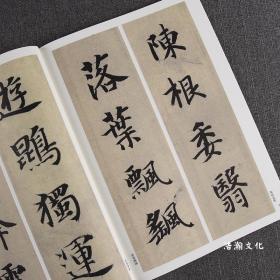 陳根委翳
落葉飄颻
遊鵾獨運
浩瀚文化